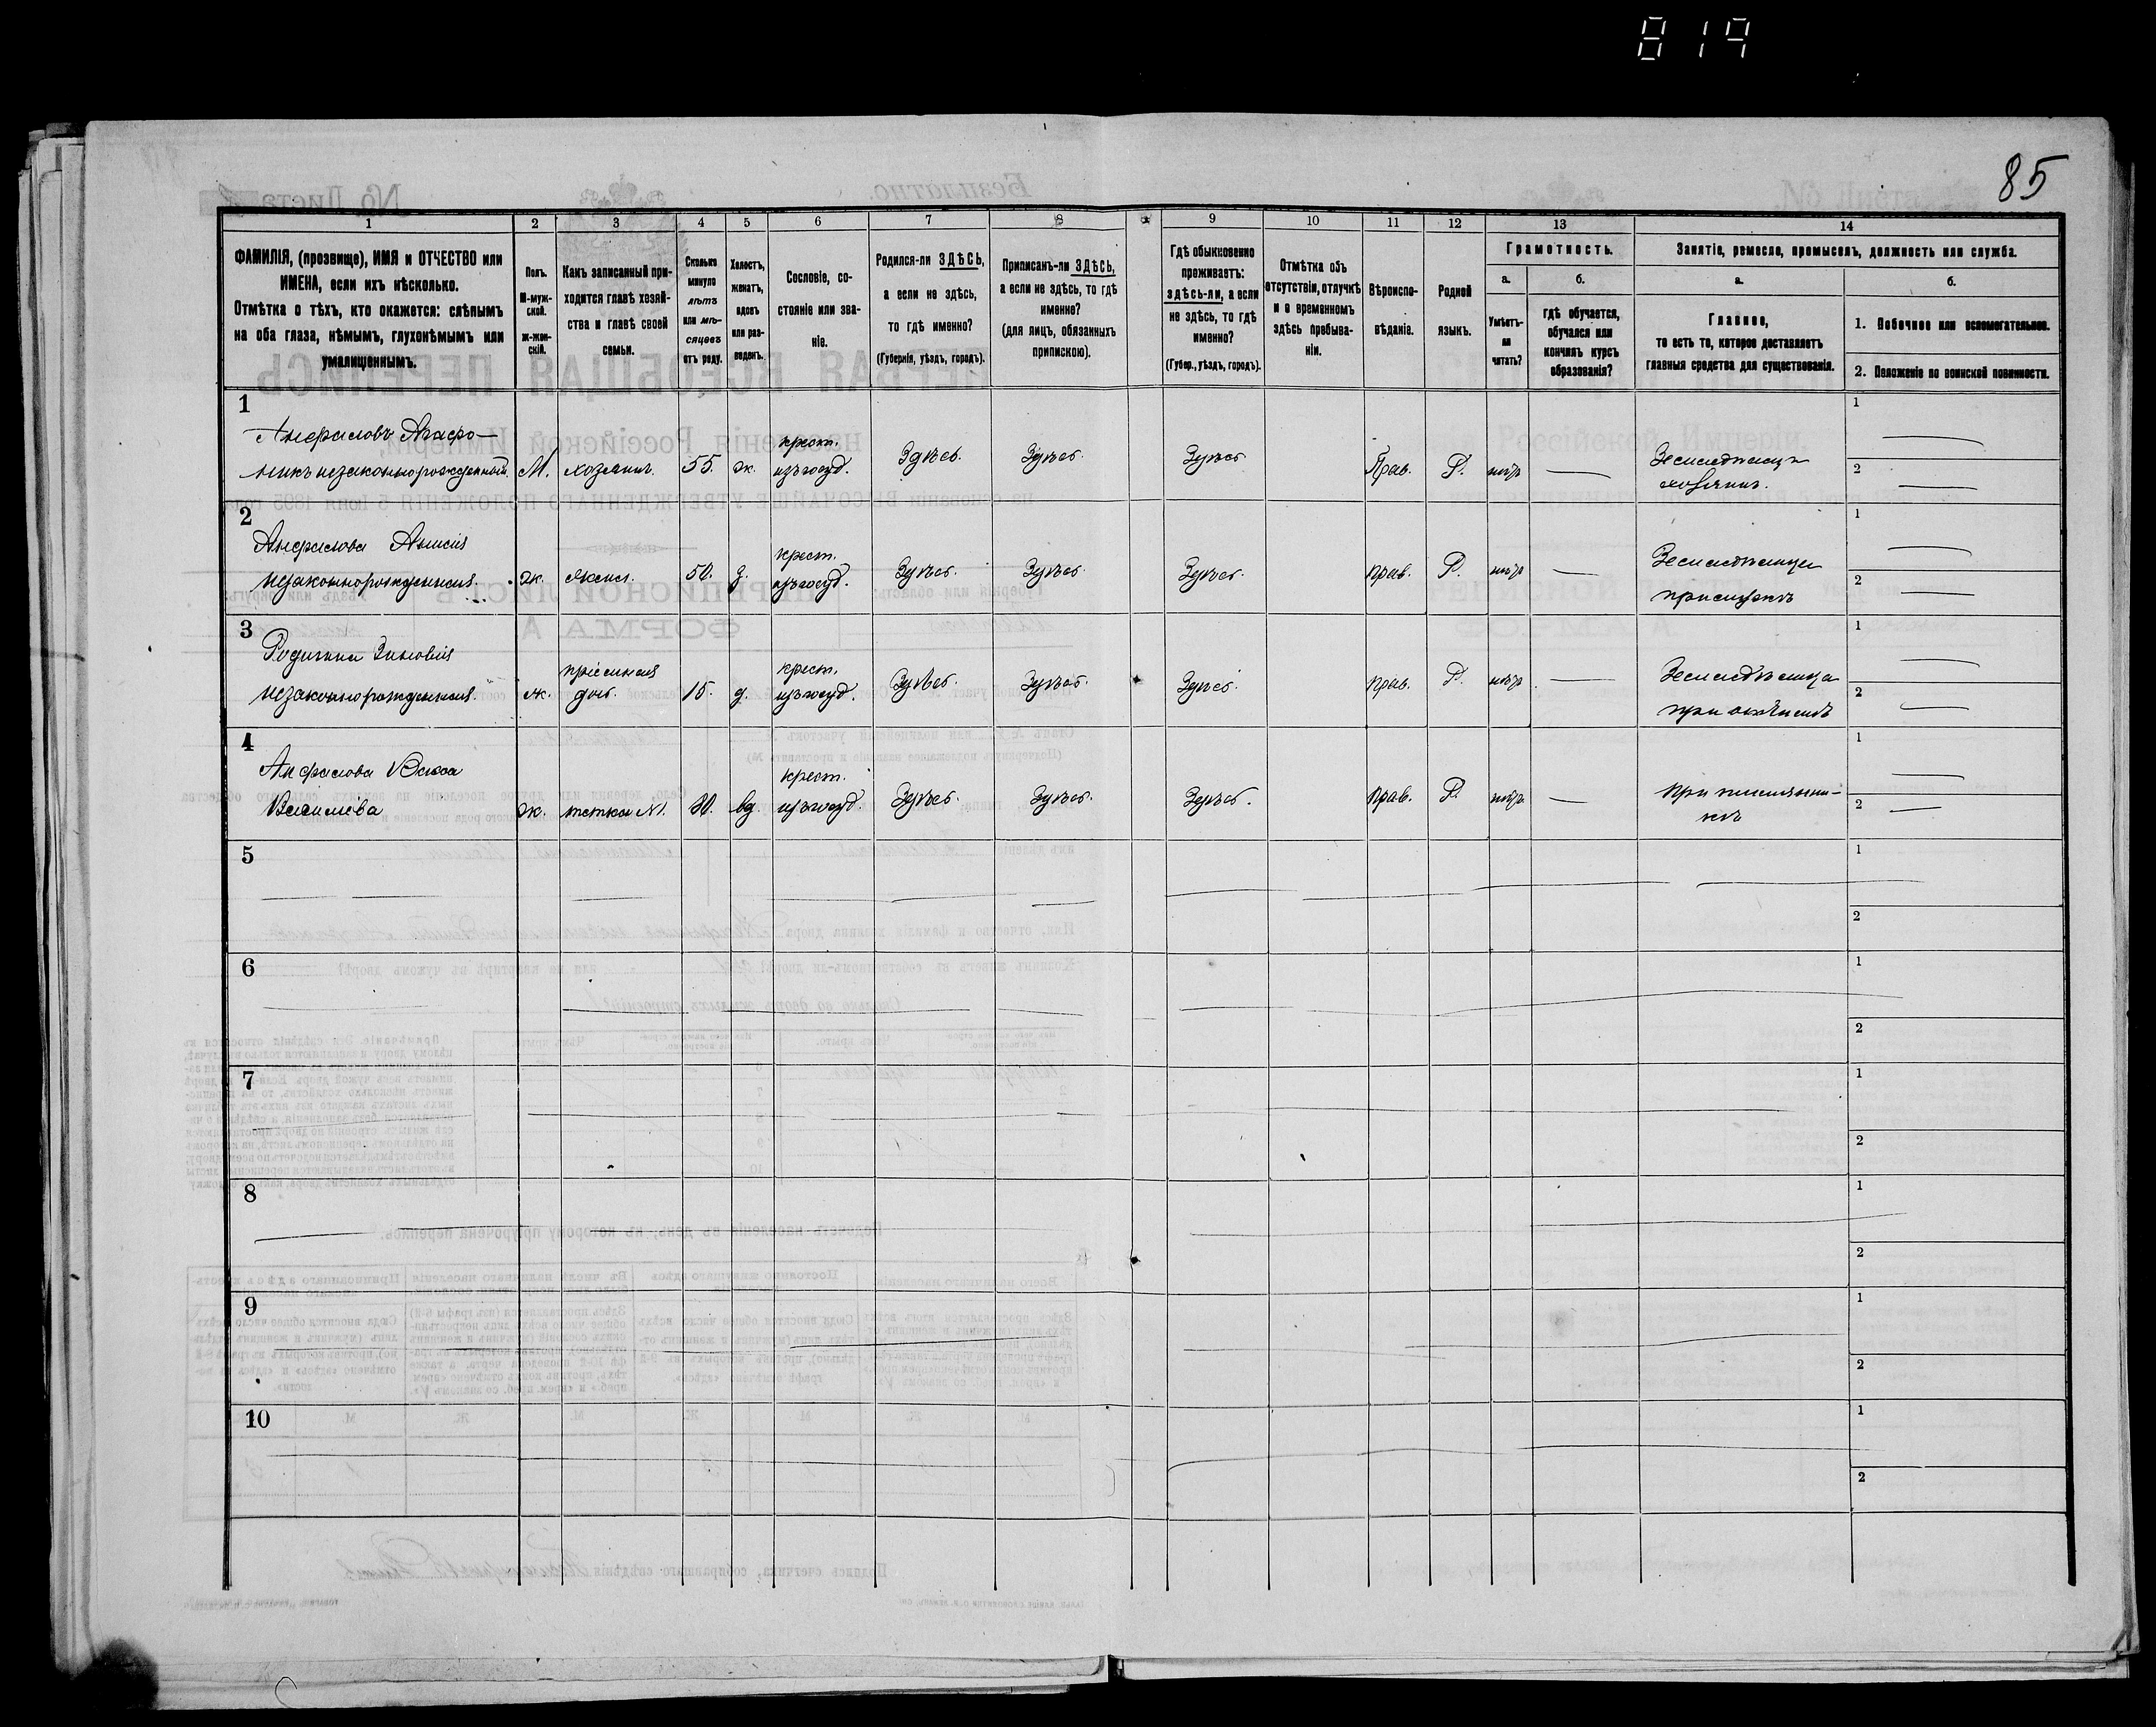 819
85
1
2
3
4
5
6
7
8
9
10
11
12
13
14
ФАМИЛІЯ, (прозвище), ИМЯ и ОТЧЕСТВО или
ИМЕНА, если ихъ нѣсколько.
Отмѣтка о тѣхъ, кто окажется: слѣпымъ
на оба глаза, нѣмымъ, глухонѣмымъ или
умалишеннымъ.
Полъ.
М-муж-
ской.
ж-жен-
скій.
Какъ записанный при-
ходится главѣ хозяй-
ства и главѣ своей
семьи.
Сколько
минуло
лѣтъ
или мѣ-
сяцевъ
отъ роду.
Холостъ,
женатъ,
вдовъ
или раз-
веденъ.
Сословіе, со-
стояніе или зва-
ніе.
Родился-ли ЗДѢСЬ,
а если не здѣсь,
то гдѣ именно?
(Губернія, уѣздъ, городъ).
Приписанъ-ли ЗДѢСЬ,
а если не здѣсь, то гдѣ
именно?
(для лицъ, обязанныхъ
припискою).
Гдѣ обыкновенно
проживаетъ:
здѣсь-ли, а если
не здѣсь, то гдѣ
именно?
(Губер., уѣздъ, городъ).
Отмѣтка объ
отсутствіи, отлучкѣ
и о временномъ
здѣсь пребыва-
ніи.
Вѣроиспо-
вѣданіе.
Родной
языкъ.
Грамотность.
а.
Умѣетъ-
ли
читать?
б.
гдѣ обучается,
обучался или
кончилъ курсъ
образованія?
Занятіе, ремесло, промыселъ, должность или служба.
а.
Главное,
то есть то, которое доставляетъ
главныя средства для существованія.
б.
1. Побочное или вспомогательное.
2. Положеніе по воинской повинности.
1
Анфаловъ Агафо-
никъ незаконнорожденный М. хозяинъ. 55. ж. крест. изъ госуд. Здѣсь. Здѣсь Здѣсь Прав. Р. нѣтъ Земледѣлецъ
хозяинъ.
1
2
2
Анфалова Анисія
незаконнорожденная. ж. жена. 50. з. крест. изъ госуд. Здѣсь. Здѣсь. Здѣсь. прав. Р. нѣтъ Земледѣлица
при мужѣ
1
2
3
Зиновія
незаконнорожденная. ж. пріемная дочь. 15. д. крест. изъ госуд. Здѣсь. Здѣсь. Здѣсь. прав. Р. нѣтъ Земледѣлица
1
2
4
Анфалова Васса
ж. тетка М. вд. крест. изъ госуд. Здѣсь. Здѣсь. Здѣсь. прав. Р. нѣтъ. при племянни-
кѣ
1
2
5
1
2
6
1
2
7
1
2
8
1
2
9
1
2
10
1
2